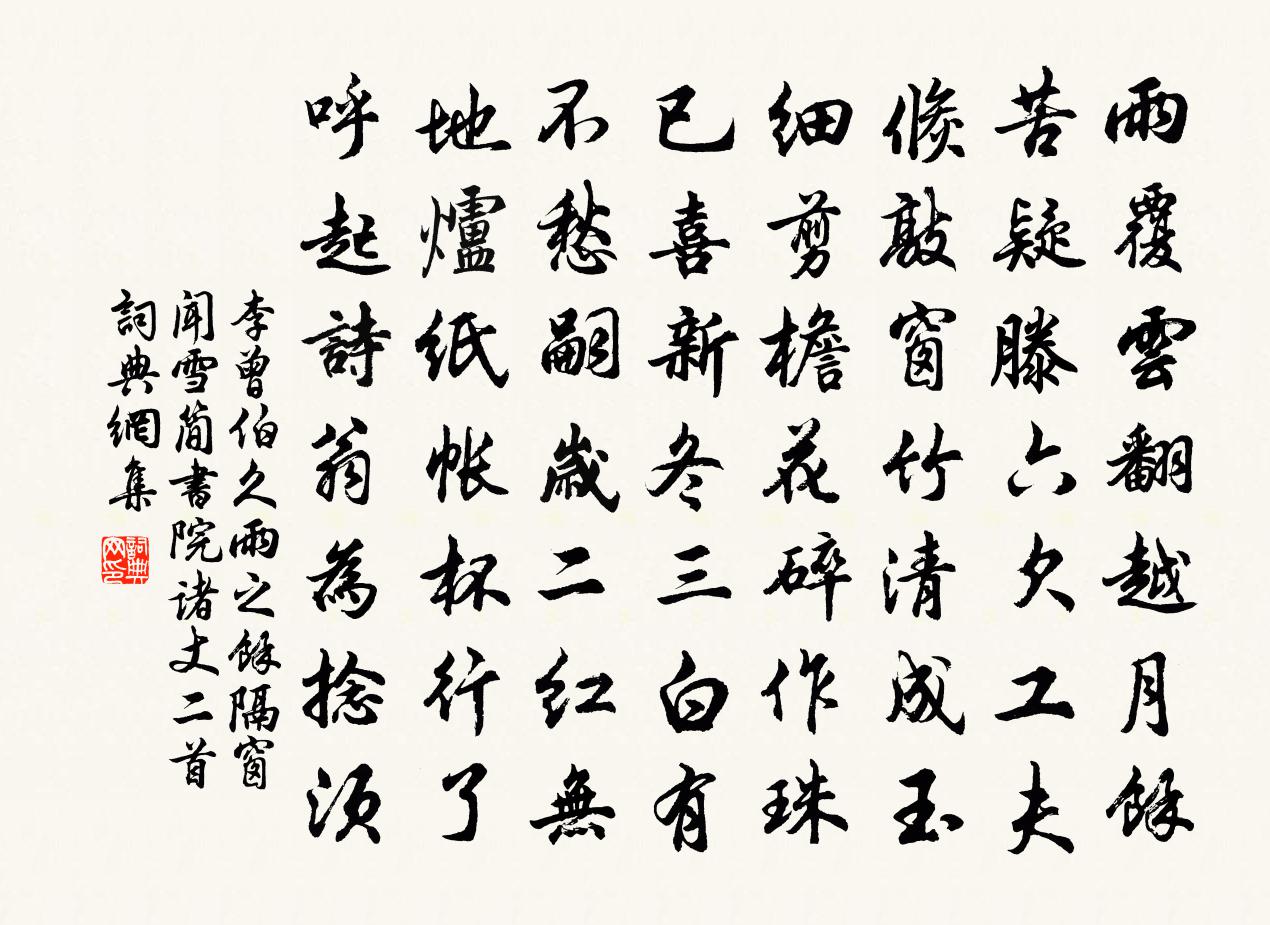 雨覆雲翻越月餘
苦疑滕六欠工夫
倏敲窗竹清成玉
細剪檐花碎作珠
已喜新冬三白有
不愁嗣歲二紅無
地爐紙帳杯行了
呼起詩翁為捻須
李曾伯久雨之餘隔窗
聞雪簡書院諸丈二首
詞典網集
詞典網印